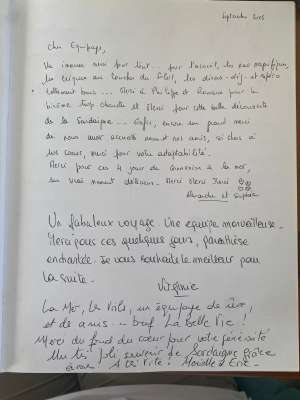 Septembre 2025
Cher Equipage,
Un immense merci pour tout... pour l'accueil, les eaux magnifiques,
les coucher du Soleil, les dîners - dej - et apéro
tellement bons... Merci à Philippe et pour
chaude et Merci pour cette belle découverte
de la Sardaigne... Enfin, encore un grand merci
de nous avoir accueilli nos amis, si chers à
nos cœurs, merci pour votre adaptabilité.
Merci pour ces 4 jours de à la mer,
un vrai moment délicieux. Merci Merci Merci
Alexandra et
Un fabuleux voyage. Une équipe merveilleuse.
Merci pour ces quelques jours, parenthèse
enchantée. Je vous souhaite le meilleur pour
la suite.
Virginie
La Mer, les Voiles, un équipage de
et de amis... bref La Belle Vie !
Merci du fond du cœur pour votre
Un très joli souvenir de Sardaigne grâce
à vous ! A très vite ! Eric.